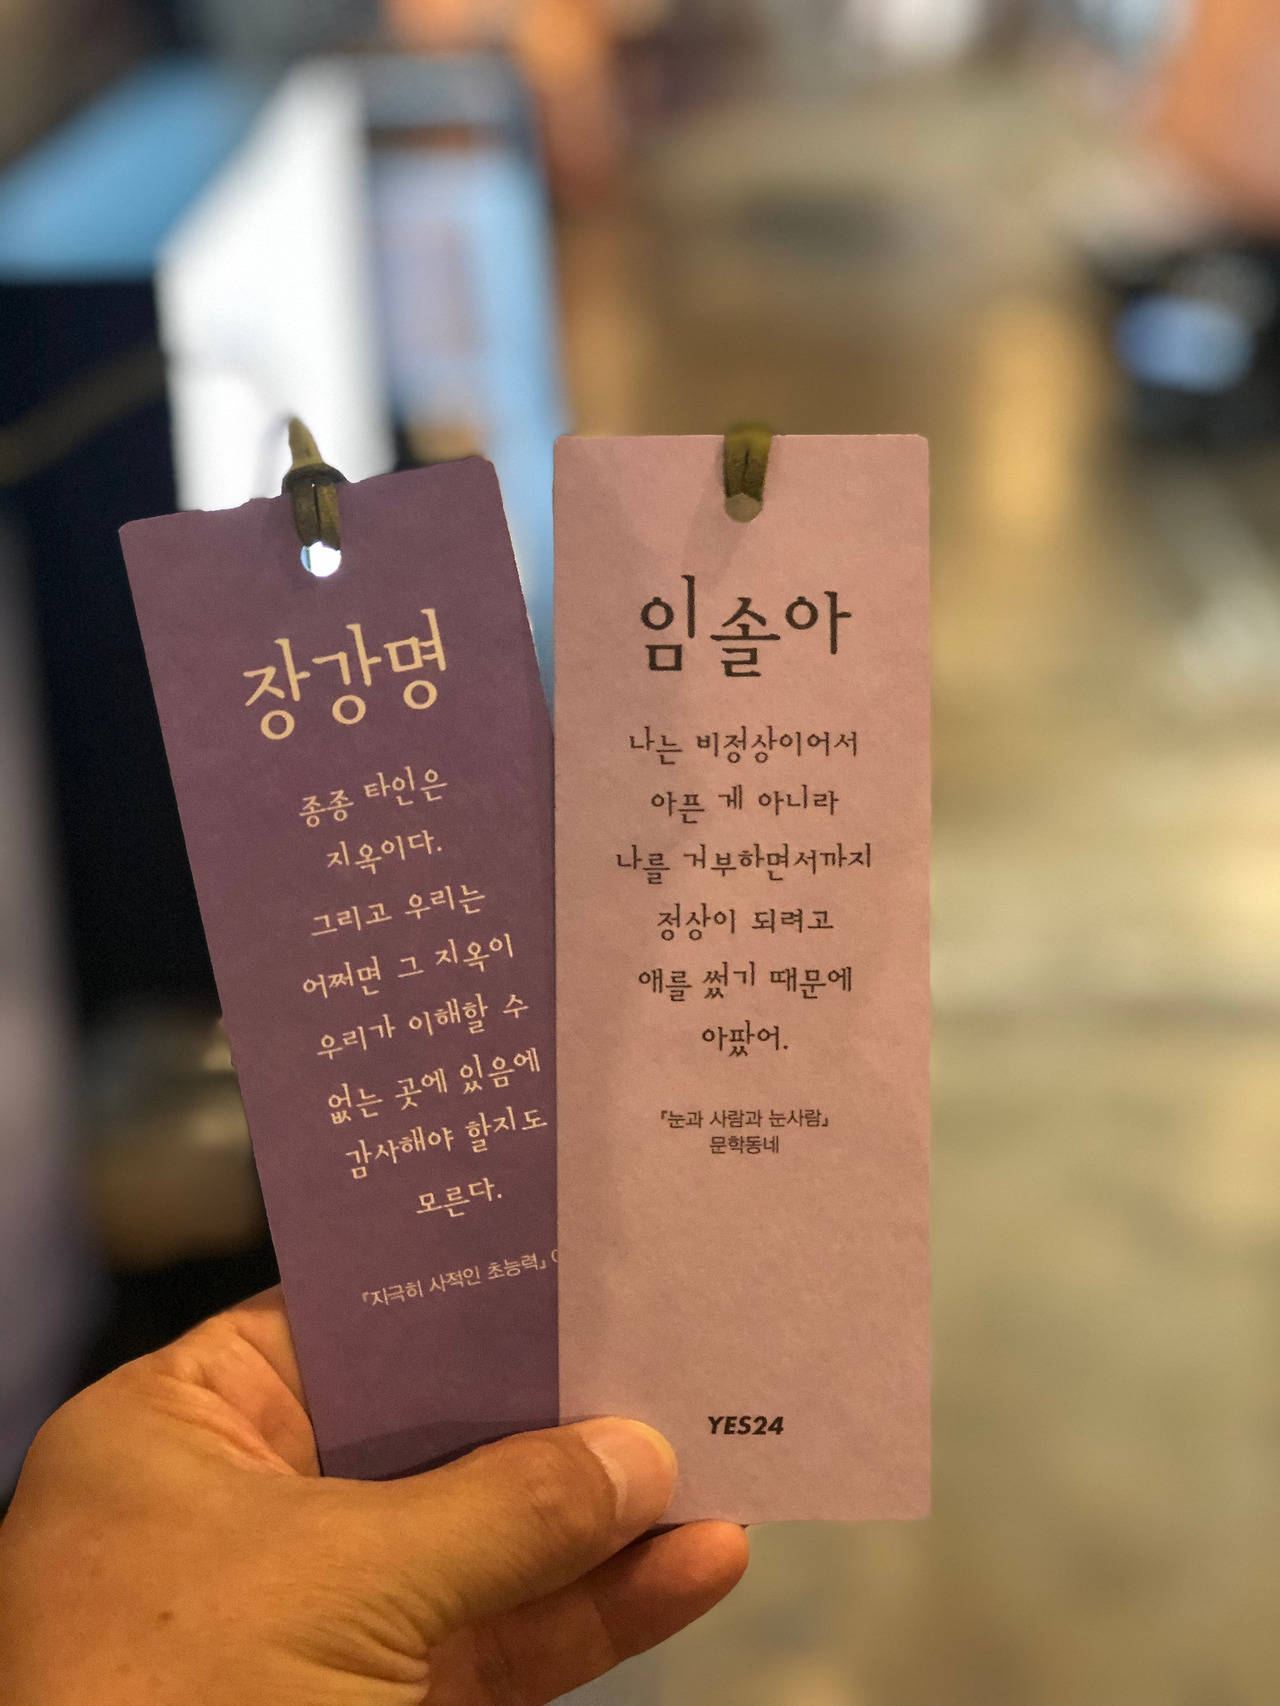 장강명
종종 타인은
지옥이다.
그리고 우리는
어쩌면 그 지옥이
우리가 이해할 수
없는 곳에 있음에
감사해야 할지도
모른다.
『지극히 사적인 초능력』
임솔아
나는 비정상이어서
아픈 게 아니라
나를 거부하면서까지
정상이 되려고
애를 썼기 때문에
아팠어.
『눈과 사람과 눈사람』
문학동네
YES24